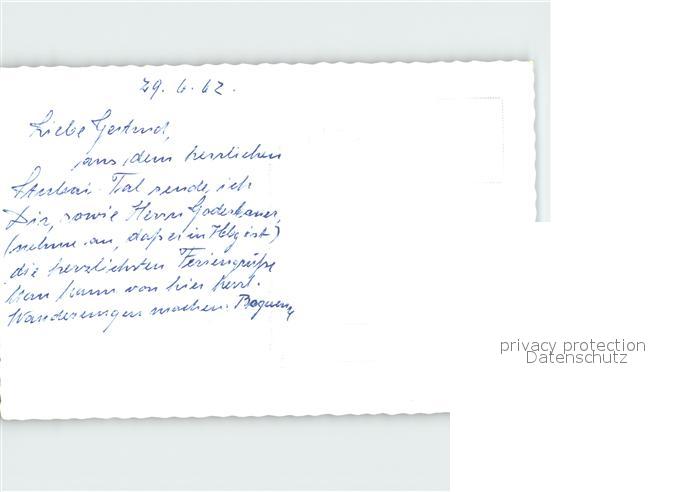 29.6.62.
Liebe Gertrud,
aus dem herrlichen
Stubai-Tal sende ich
Dir, sowie Herrn Goderbauer,
(nehme an, daß er in Hbg ist)
die herzlichsten Feriengrüße
Man kann von hier herrl.
Wanderungen machen.
privacy protection
Datenschutz